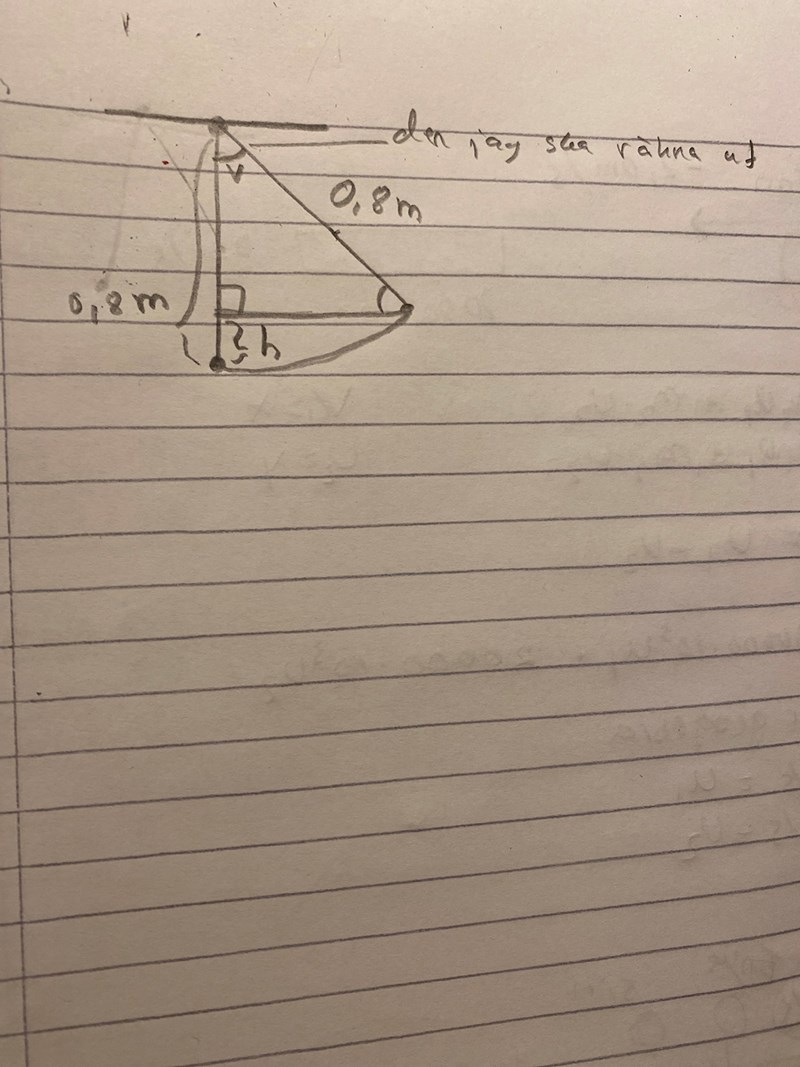 den jag ska räkna ut
v
0,8 m
0,8 m
h